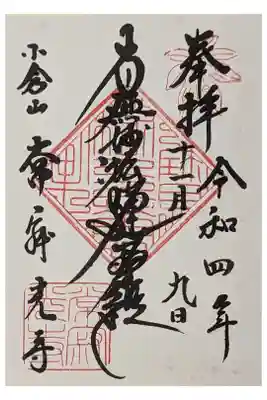 奉拝
令和四年
十一月
九日
南無妙法蓮華経
小倉山
常寂光寺